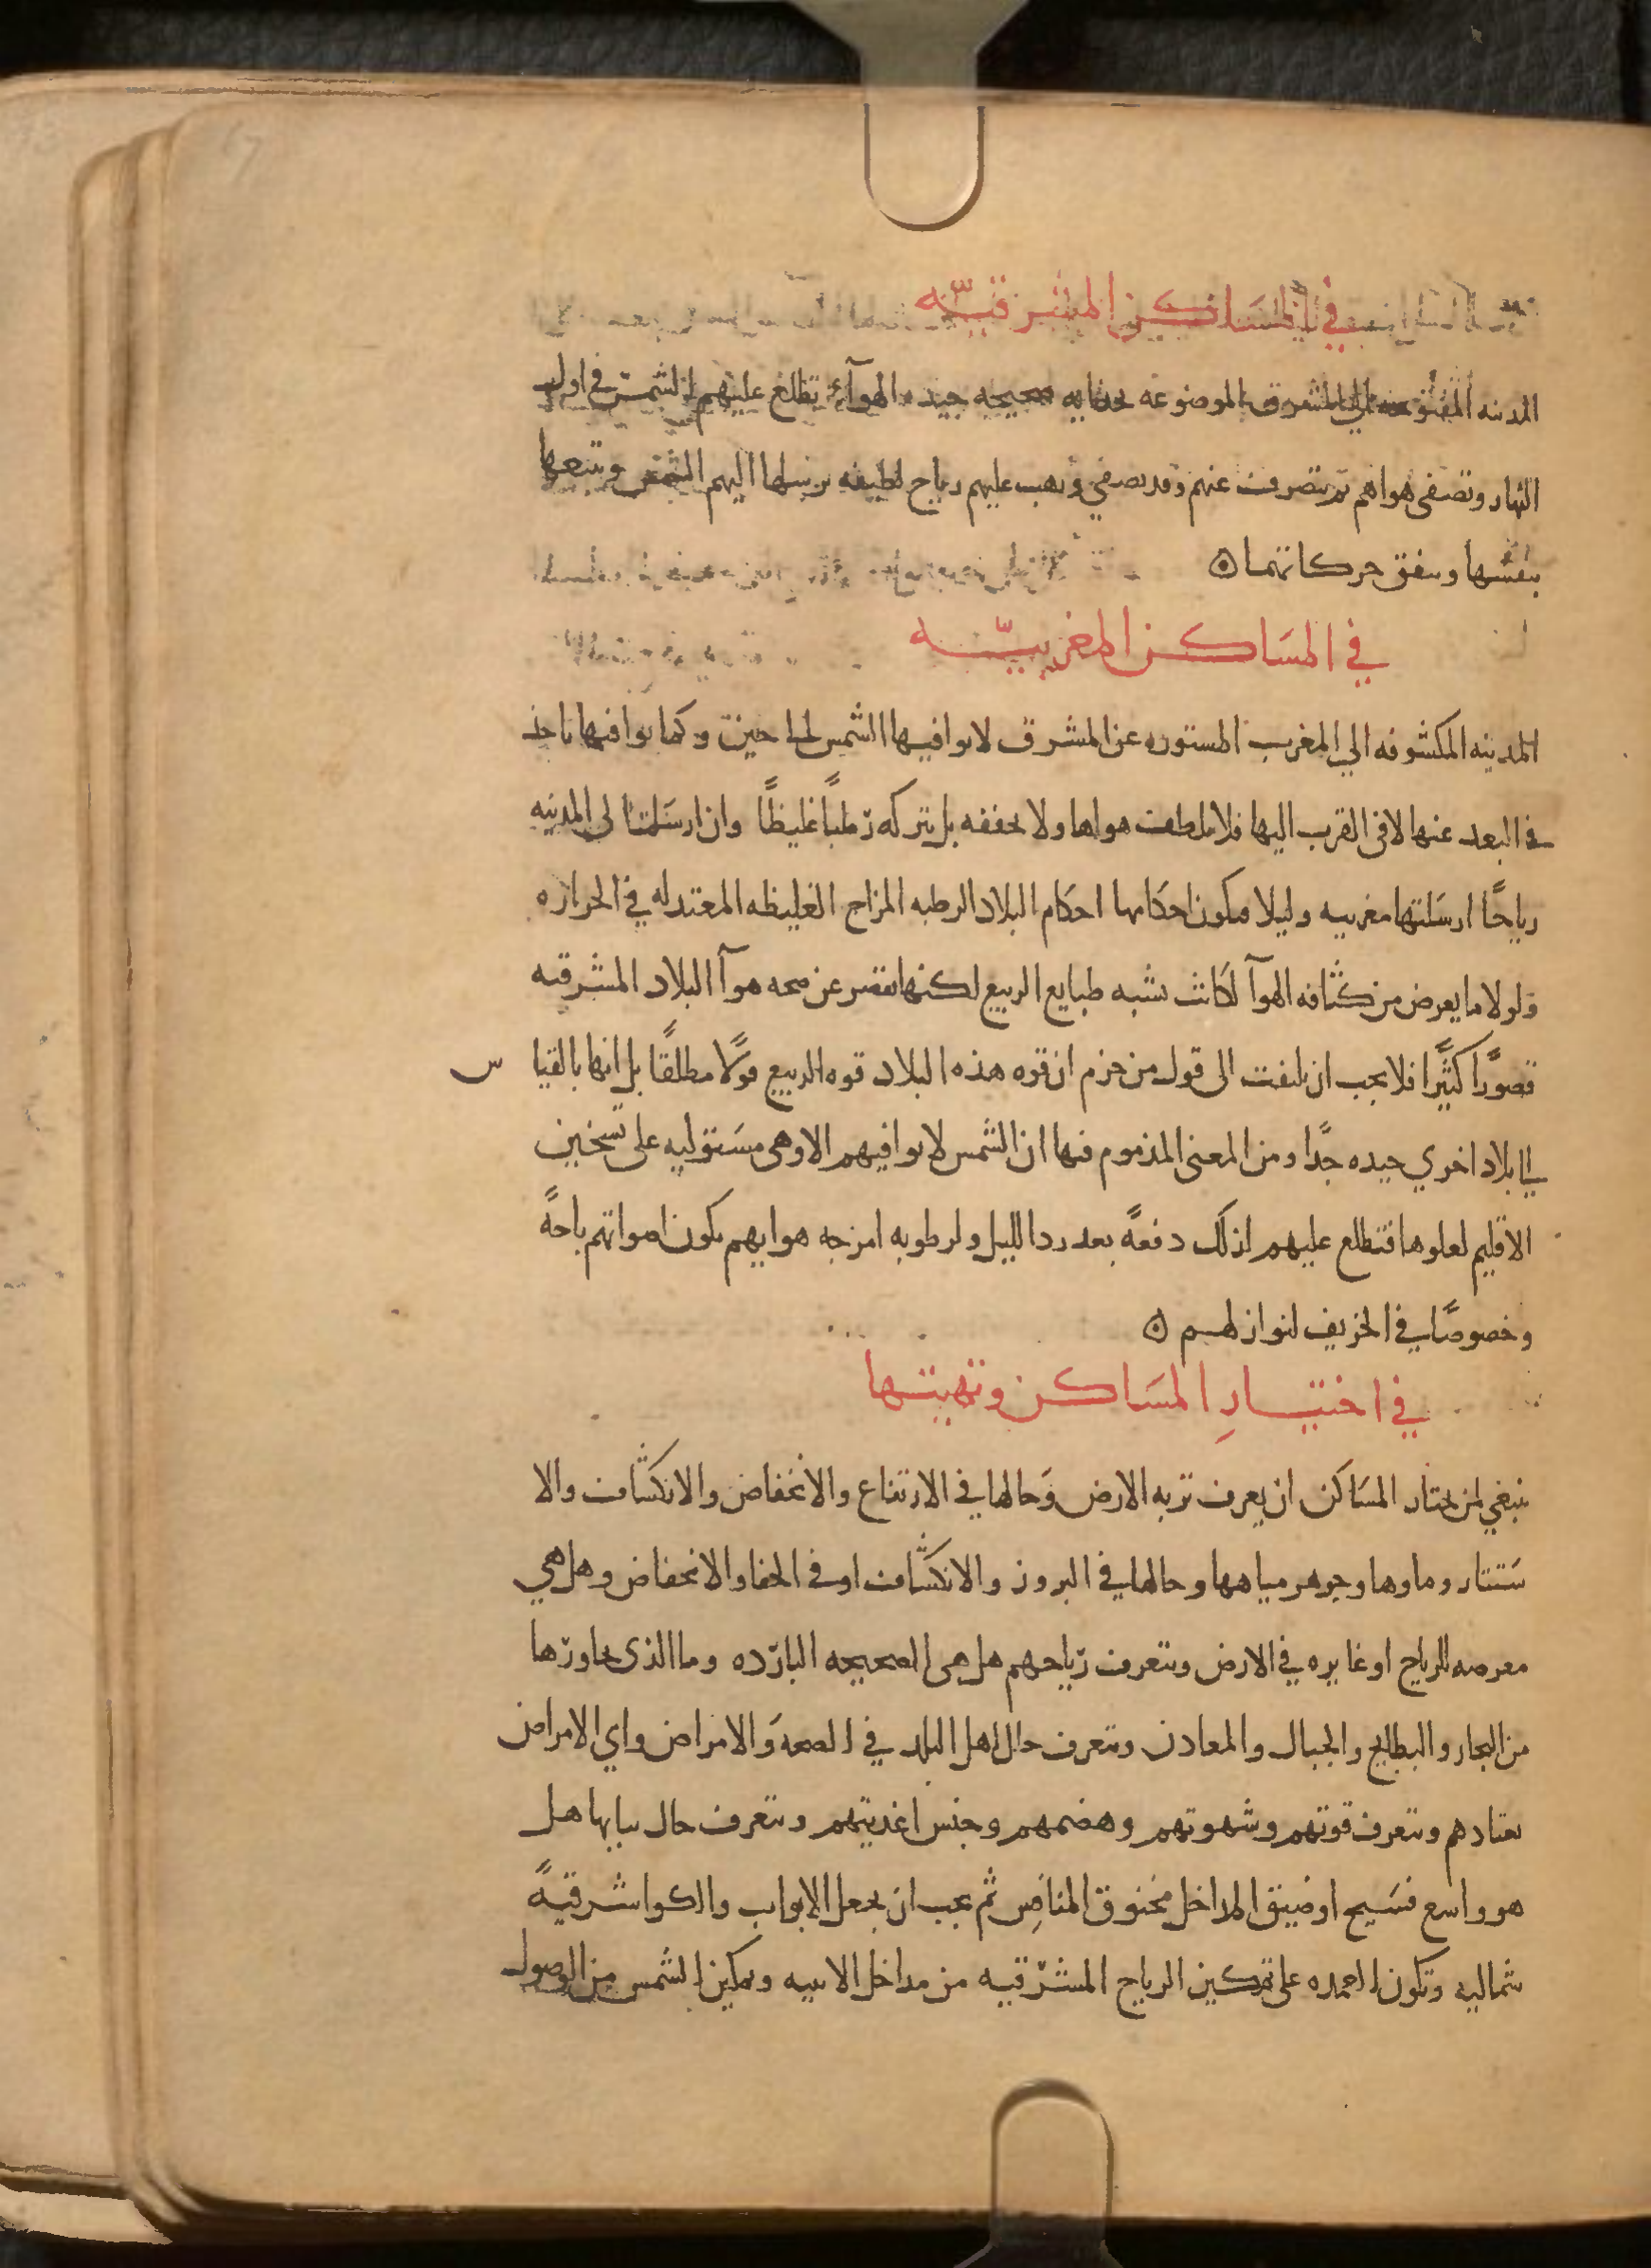 في المساكن المشرقيّه
المدينه المفتوحه الى المشرق الموضوعه بحذايه صحيحه جيده الهوآء تطلع عليهم الشمس في اول
النهار وتصفى هواهم ثم تنصرف عنهم وقد تصفي وتهب عليهم رياح لطيفه ترسلها اليهم الشمس وتتبعها
بنفسها وتتفق حركاتهما ه
في المسَاكن المغربيّه
المدينه المكشوفه الي المغرب المستوره عن المشرق لا توافيها الشمس الى حين وكما توافيها تاخذ
في البعد عنها لا في القرب اليها فلا تلطف هواها ولا تجففه بل تتركه رطبًا غليظًا وان ارسَلت الى المدينه
رياحًا ارسَلتها مغربيه وليلا فتكون احكَامها احكَام البلاد الرطبه المزاج الغليظه المعتدله في الحراره
ولولا ما يعرض من كثافه الهوآ لكَانت تشبه طبايع الربيع لكنها تقصر عن صحه هوآ البلاد المشرقيه
قصورًا كثيرًا فلا يجب ان يلتفت الى قول من جزم ان قوه هذه البلاد قوه الربيع قولًا مطلقًا بل انها بالقيا س
الى بلاد اخري جيده جدًا ومن المعنى المذموم فيها ان الشمس لا توافيهم الا وهى مستوليه على تسخين
الاقليم لعلوها فتطلع عليهم لذلك دفعةً بعد برد الليل ولرطوبه امزجه هوايهم تكون اصواتهم باحةً
وخصوصًا في الخريف لنوازلهم ه
في اختيارِ المسَاكن وتهيئتها
ينبغي لمن يختار المسَاكن ان يعرف تربه الارض وَحالها في الارتفاع والانخفاض والانكشاف والا
ستتار وماوها وجوهر مياهها وحالها في البروز والانكشاف او في الخفا والانخفاض وهل هي
معرضه للرياح او غايره في الارض ويتعرف رياحهم هل هى الصحيحه البارده وما الذى يجاورها
من البحار والبطايح والجبال والمعادن ويتعرف حال اهل البلد في الصحه وَالامراض واي الامراض
يعتادهم ويتعرف قوتهم وشهوتهم وهضمهم وجنس اغذيتهم ويتعرف حال مايها هل
هو واسع فسَيح او ضيق المداخل مخنوق المنافِس ثم يجب ان يجعل الابواب والكوا شرقيةً
شماليه وتكون العمده على تمكين الرياح المشرقيه من مداخل الابنيه وتمكين الشمس من الوصول